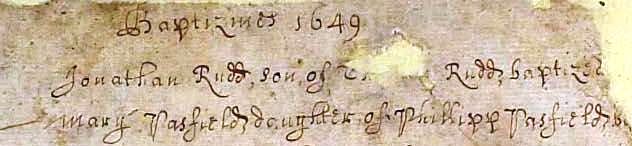 Baptizmes 1649
Jonathan Rudd, son, of, Rudd, baptized
Mary Pasfield, daughter, of Phillipp Pasfield,